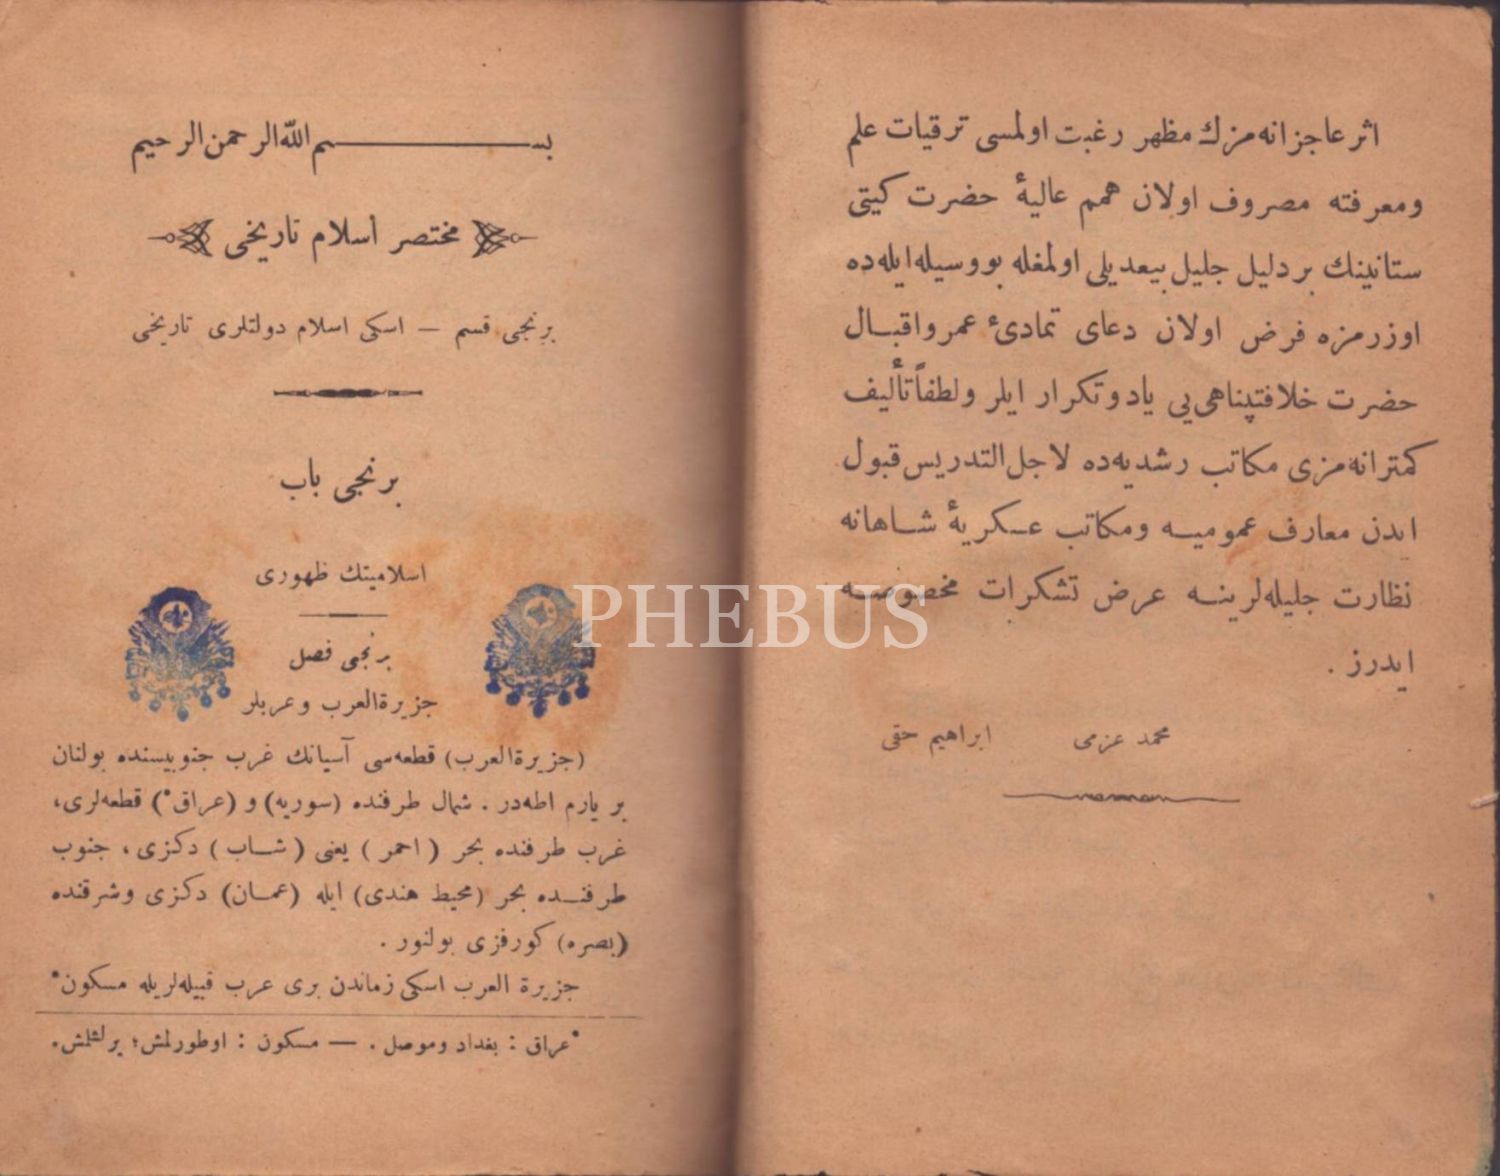 اثر عاجزانه‌مزك مظهر رغبت اولمسی ترقیات علم
ومعرفته مصروف اولان همم عالیهٔ حضرت كیتی
ستانینك بر دلیل جلیل بیعدیلی اولمغله بو وسیله ایله‌ده
اوزرمزه فرض اولان دعای تمادیٔ عمر و اقبـال
حضرت خلافتپناهی‌یی یاد و تكرار ایلر و لطفاً تألیف
كمترانه‌مزی مكاتب رشدیه‌ده لاجل التدریس قبول
ایدن معارف عمومیـه ومكاتب عـسكریهٔ شـاهانه
نظارت جلیله‌لرینـه عرض تشكرات مخصوصـه
ایدرز .
محمد عزمی ابراهیم حقی
بســـــم الله الرحمن الرحیم
مختصر اسلام تاریخی
برنجی قسم — اسكی اسلام دولتلری تاریخی
برنجی باب
اسلامیتك ظهوری
برنجی فصل
جزیرة‌العرب و عربلر
(جزیرة‌العرب) قطعه‌سی آسیانك غرب جنوبیسنده بولنان
بر یارم اطه‌در . شمال طرفنده (سوریه) و (عراق*) قطعه‌لری،
غرب طرفنده بحر (احمر) یعنی (شـاب) دكزی، جنوب
طرفنـده بحر (محیط هندی) ایله (عمـان) دكزی وشرقنده
(بصره) كورفزی بولنور .
جزیرة العرب اسكی زماندن بری عرب قبیله‌لریله مسكون*
*عراق : بغداد وموصل . — مسكون : اوطورلمش؛ یرلشلمش.
PHEBUS